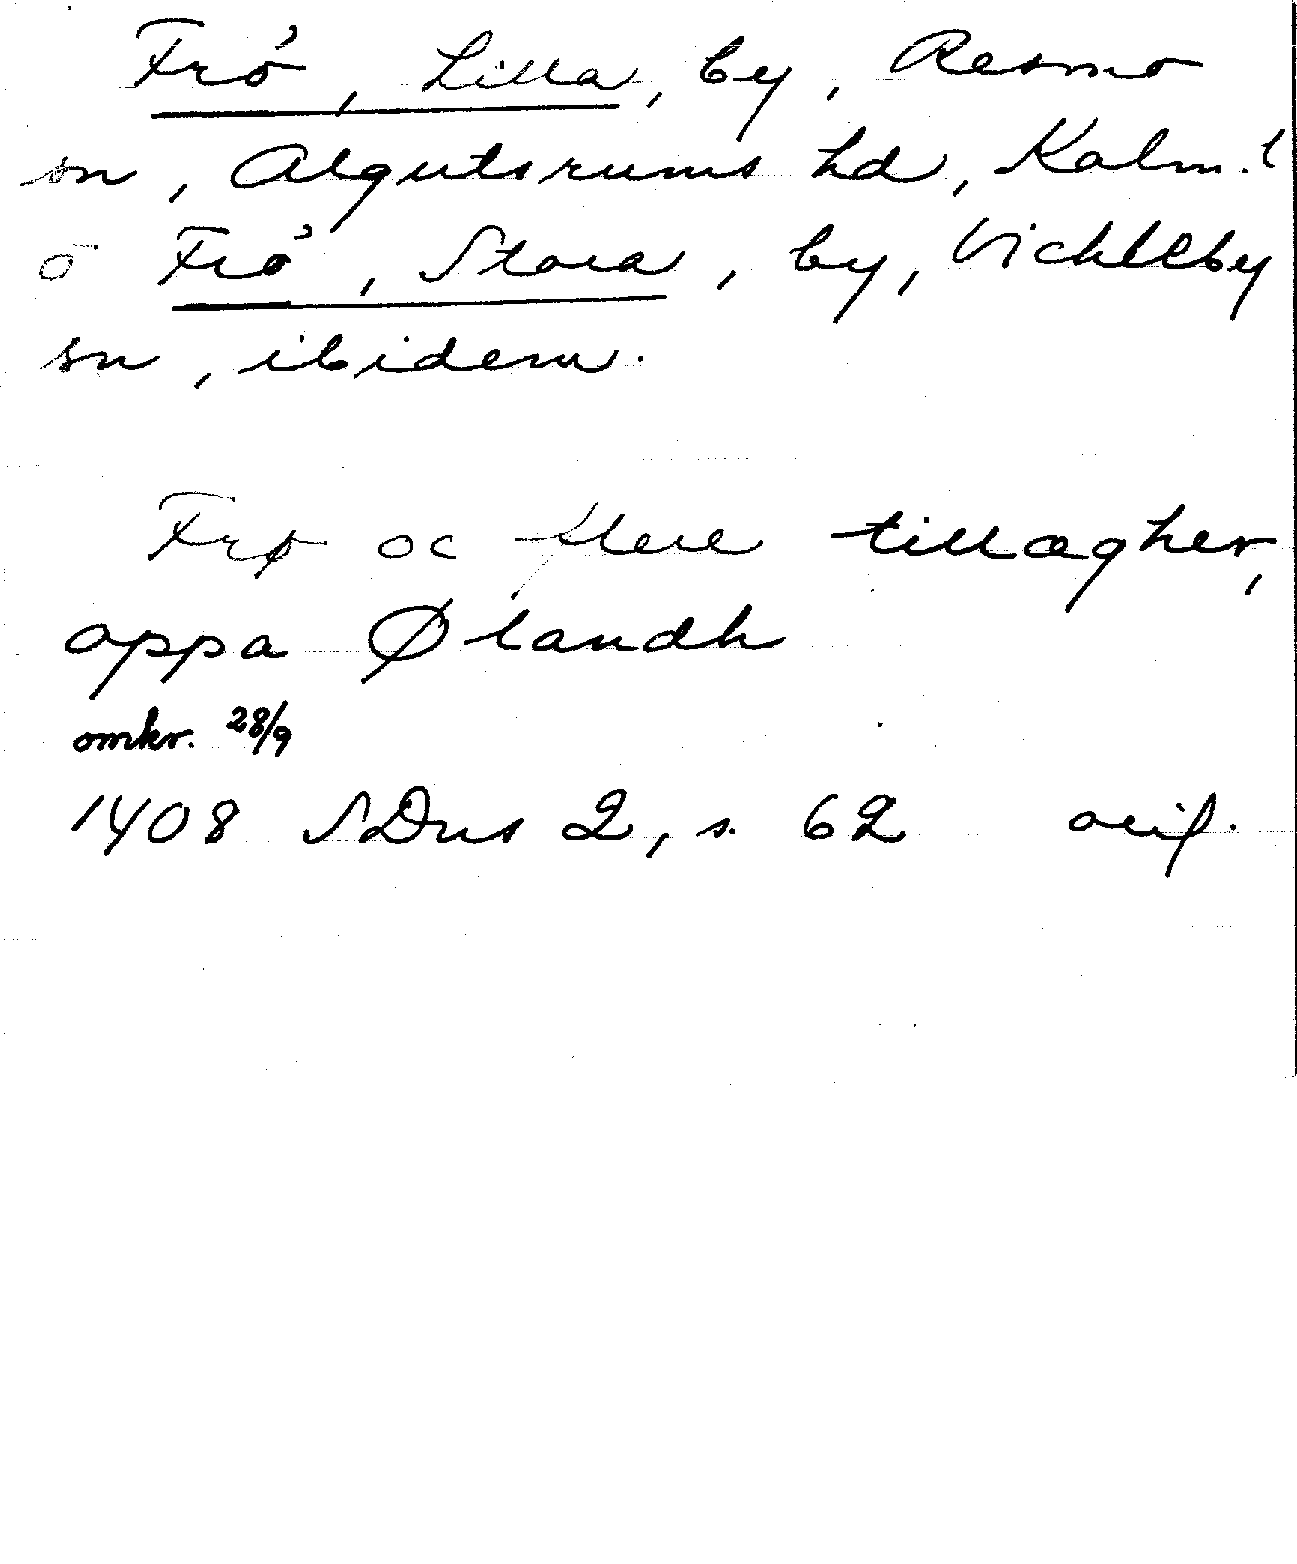 Frö, Lilla, by, Resmo
sn, Algutsrums hd, Kalm. l
o Frö, Stora, by, Vickleby
sn, ibidem.
Frø oc flere tillægher,
oppa Ølandh
omkr. 28/9
1408 SDns 2, s. 62 orig.